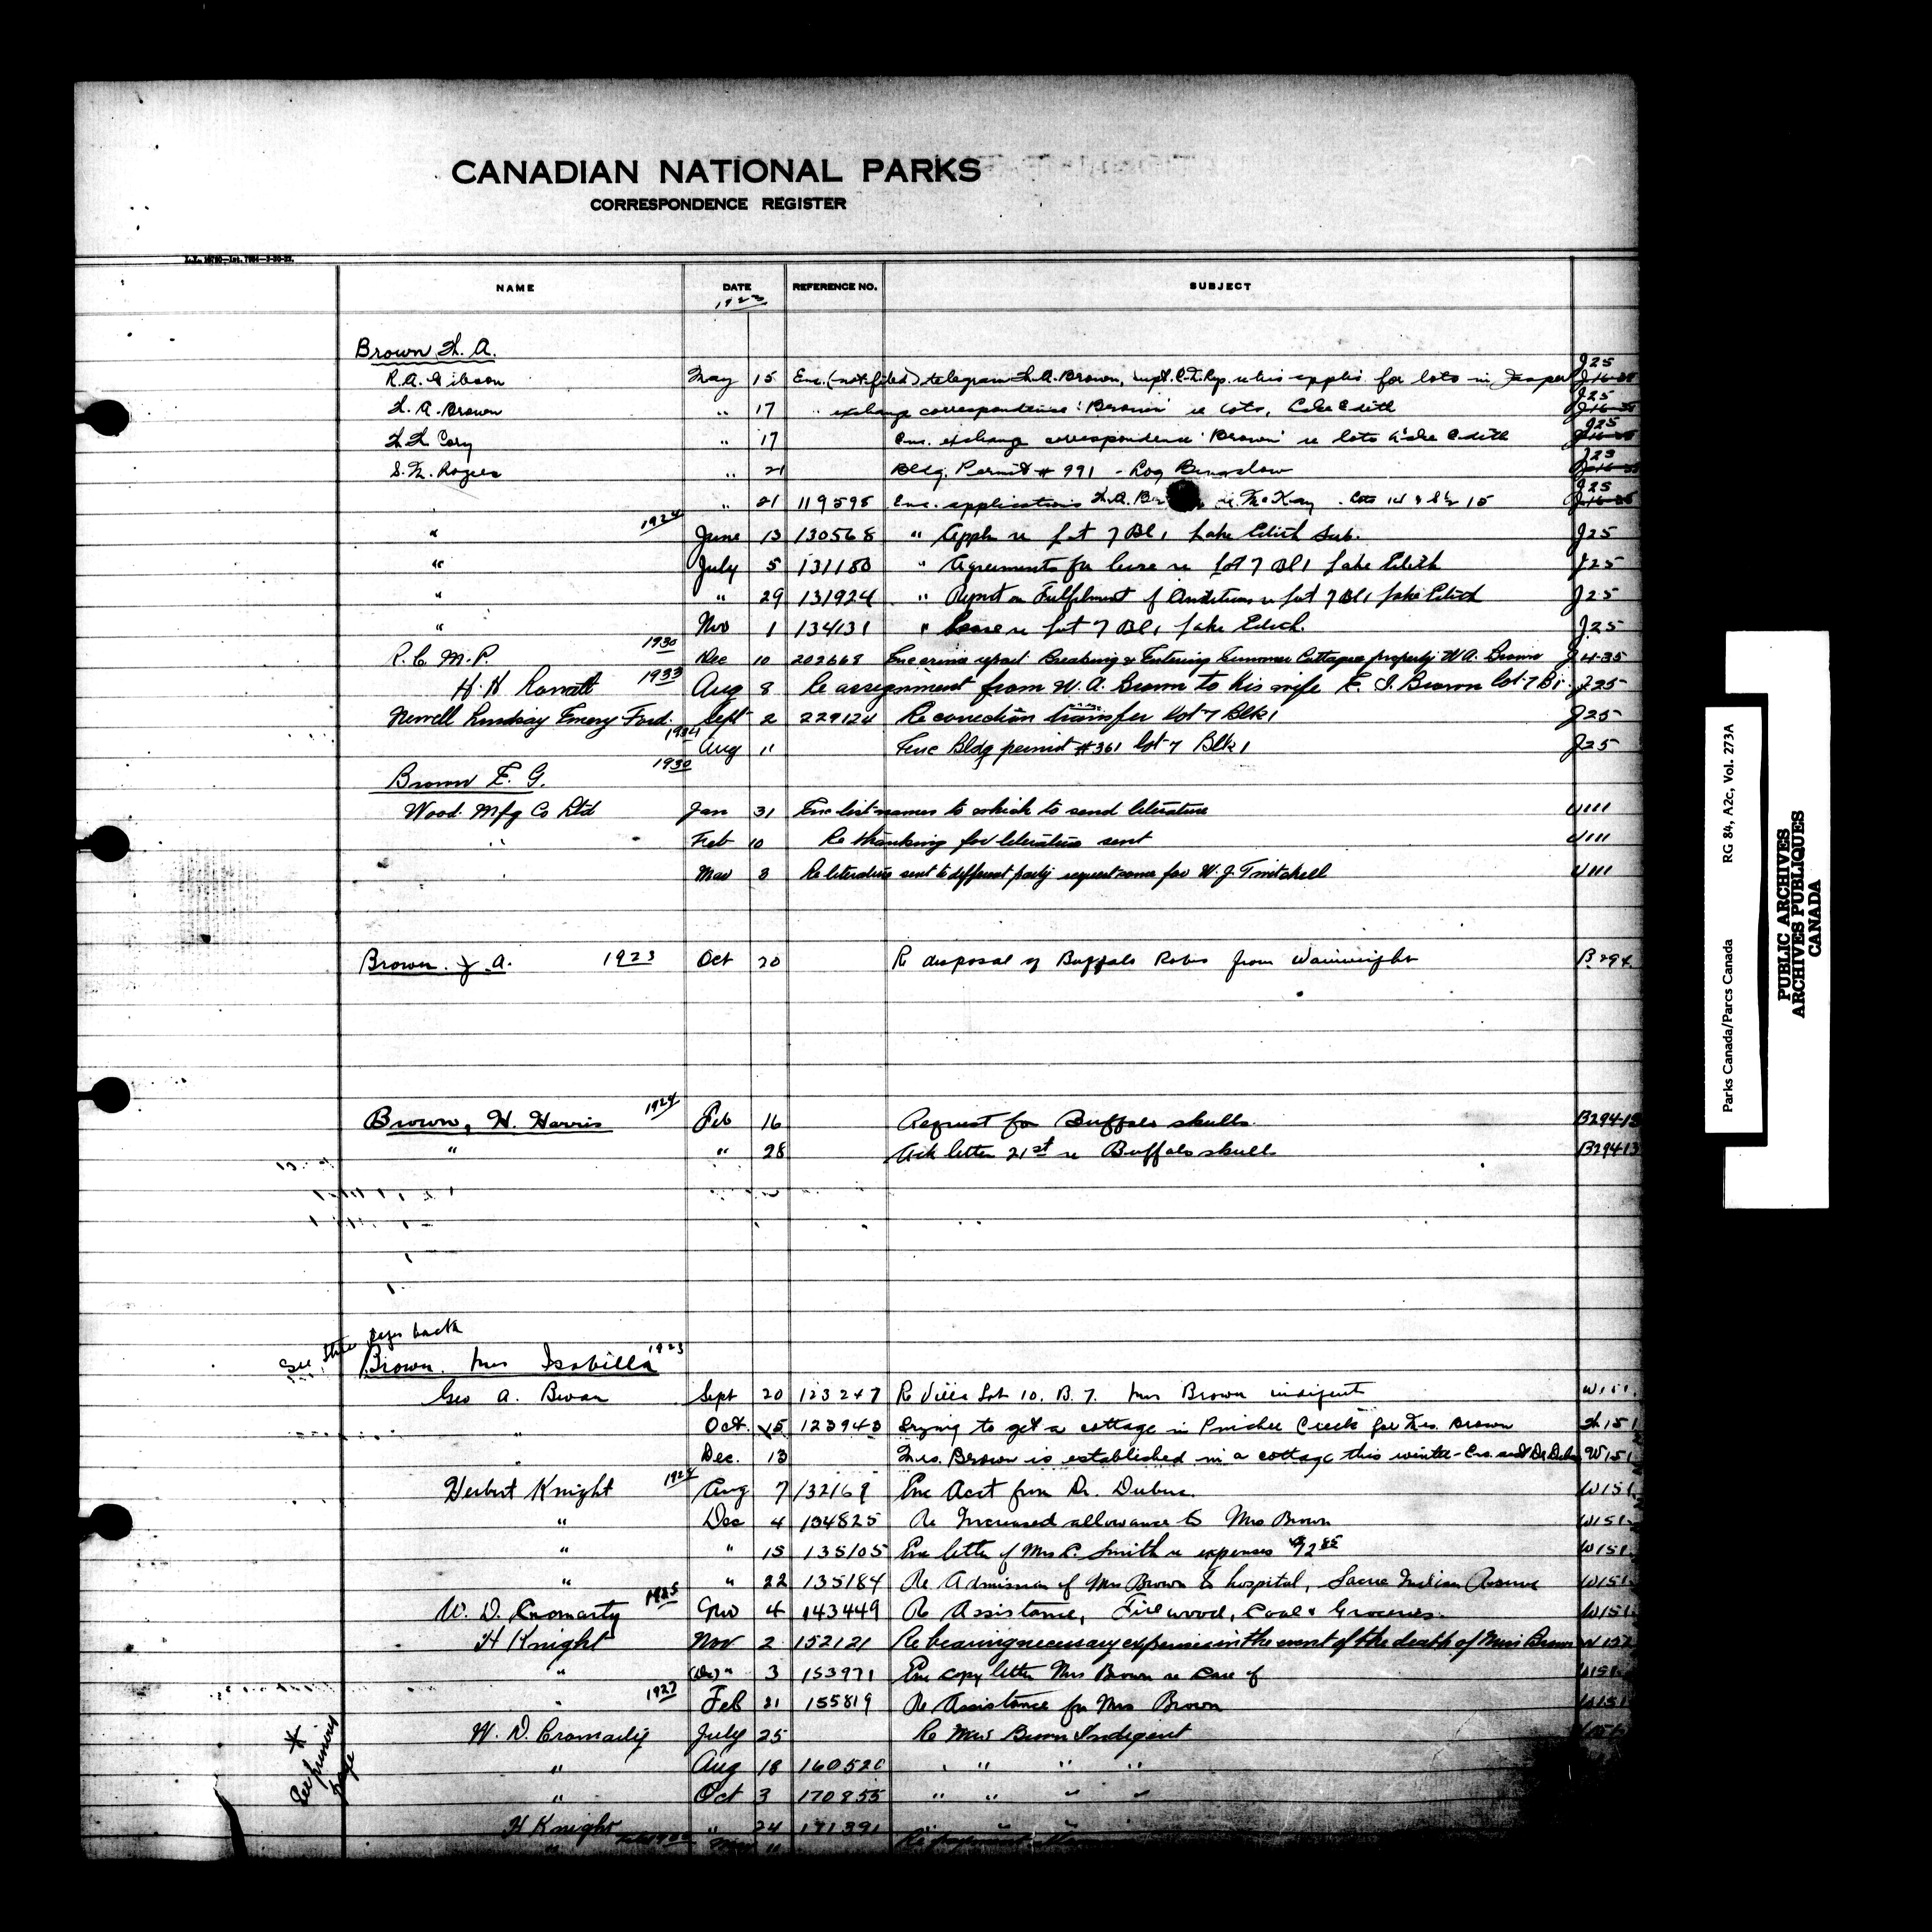 CANADIAN NATIONAL PARKS
CORRESPONDENCE REGISTER
NAME DATE REFERENCE NO. SUBJECT
1923
Brown W. A.
J25
R.A. Gibson May 15 Enc. (not filed) telegram W.A. Brown, re his applic for lots in Jasper J16-35
J25
W. A. Brown " 17 " exchange correspondence 'Brown' re lots, Lake Edith J16-35
J25
W W Cory " 17 Enc. exchange correspondence 'Brown' re lots Lake Edith J16-35
J25
S. M. Rogers " 21 Bldg. Permit # 991 - Log Bungalow J16-35
J25
" " 21 119598 Enc. applications W.A. re McKay Lots 14 & 15 J16-35
" 1924 June 13 130568 " Appln re Lot 7 Bl 1 Lake Edith Sub. J25
" July 5 131180 " Agreements for lease re Lot 7 Bl 1 Lake Edith J25
" " 29 131924 " Report on Fulfilment of Conditions re Lot 7 Bl 1 Lake Edith J25
" Nov 1 134131 " Lease re Lot 7 Bl 1 Lake Edith. J25
R. C. M. P. 1930 Dec 10 202668 Enc crime report Breaking & Entering Summer Cottages property W.A. Brown J4-35
H. H Rowatt 1933 Aug 8 Re assignment from W. A. Brown to his wife E. I. Brown lot 7 B1 J25
Newell Lindsay Emery Ford. Sept 2 229124 Re correction transfer lot 7 Blk 1 J25
1934 Aug 11 Enc Bldg permit #361 lot 7 Blk 1 J25
Brown E. G. 1930
Wood Mfg Co Ltd Jan 31 Enc list names to which to send literature U111
" Feb 10 Re thanking for literature sent U111
" Mar 8 Re literature sent to different party request same for W. J. U111
Brown. J. A. 1923 Oct 20 Re disposal of Buffalo Robes from Wainwright B294
Brown, H. Harris 1924 Feb 16 Request for Buffalo skulls. B294-13
" " 28 Ack letter 21st re Buffalo skull B294-13
See three pages back
Brown. Mrs Isabilla 1923
Geo A. Bevan Sept 20 123247 Re Villa Lot 10. B. 7. Mrs Brown indigent W151.
" Oct. 15 123943 Trying to get a cottage in Pincher Creek for Mrs. Brown W151
" Dec. 13 Mrs. Brown is established in a cottage this winter - W151
Herbert Knight 1924 Aug 7 132169 Enc Acct from Dr. W151
" Dec 4 134825 Re Increased allowance to Mrs Brown W151
" " 15 135105 Enc letter of Mrs C. Smith re expenses W151
" " 22 135184 Re Admission of Mrs Brown to hospital, Indian Reserve W151
W. D. Cromarty 1925 4 143449 Re Assistance, Firewood, Coal & Groceries. W151
H Knight Nov 2 152121 Re bearing necessary expenses in the event of the death of Mrs Brown W152
" (Dec) " 3 153971 Enc copy letter Mrs Brown re care of W151
" 1927 Feb 21 155819 Re Assistance for Mrs Brown W151
W. D. Cromarty July 25 Re Mrs Brown Indigent
" Aug 18 160520 " " " "
" Oct 3 170855 " " " "
H Knight " 24 171391 " " "
" 11 Re
* See previous page
RG 84, A2c, Vol. 273A
Parks Canada/Parcs Canada
PUBLIC ARCHIVES
ARCHIVES PUBLIQUES
CANADA